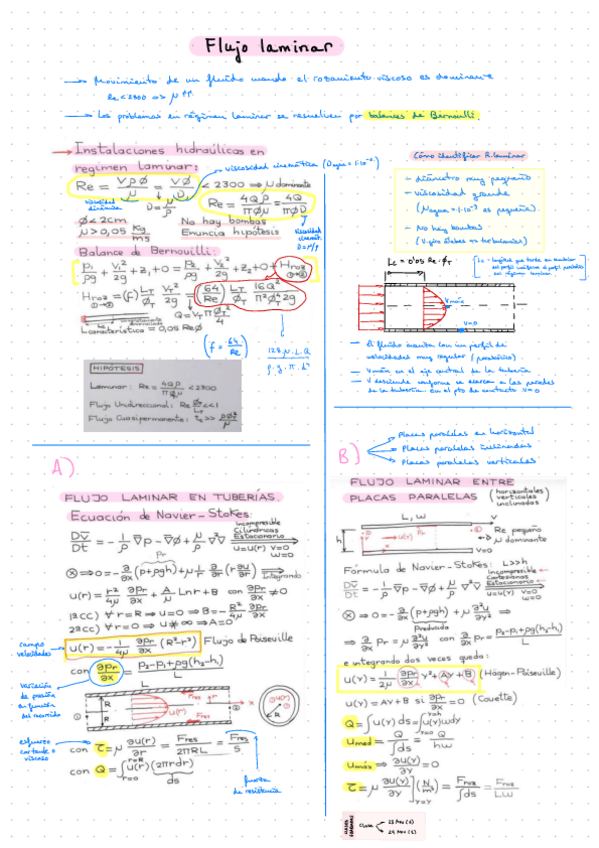 Flujo laminar
→ Movimiento de un fluido cuando el rozamiento viscoso es dominante
Re < 2300 ⇔ μ ↑↑.
→ Los problemas en régimen laminar se resuelven por balances de Bernoulli.
→ Instalaciones hidraúlicas en
regimen laminar:
viscosidad cinemática
Re = VρØ/μ = VØ/ν < 2300 ⇒ μ dominante
Re = 4Qρ/πØμ = 4Q/πØν
viscosidad dinámica
ν = μ/ρ
Ø < 2cm
μ > 0,05 Kg/ms
No hay bombas
Enuncia hipótesis
Balance de Bernouilli:
[p₁/ρg + V₁²/2g + z₁ + 0 = p₂/ρg + V₂²/2g + z₂ + 0 + Hroz]
Hroz = (f) LT/ØT VT²/2g = (64/Re) LT/ØT 16Q²/π²Ø⁴2g
Q = VT πØT²/4
Lcaracterística = 0,05 Re Ø
(f = 64/Re)
128.μ.L.Q / ρ.g.π.
HIPÓTESIS
Laminar: Re = 4Qρ/πØμ < 2300
Flujo Unidireccional: Re ØT/LT << 1
Flujo Cuasipermanente: tc >> ρØ²/μ
Cómo identificar R. laminar
- diámetro muy pequeño
- viscosidad grande
(μagua = 1·10⁻³ es pequeña).
- No hay bombas
Lc = 0'05 Re · ØT
Vmáx
V=0
- El fluido
velocidades muy regular (parabólico)
- Vmáx en el eje central de la tubería
- V desciende conforme se acerca a las paredes
de la tubería. en el pto de contacto V=0
A)
FLUJO LAMINAR EN TUBERÍAS.
Ecuación de Navier-Stokes:
Incompresible
Cilíndricas
Estacionario
Dv̄/Dt = - 1/ρ ∇p - ∇Ø + μ/ρ ∇²v̄
u=u(r) V=0 w=0
ⓧ ⇒ 0 = - ∂/∂x (p+ρgh) + μ 1/r ∂/∂r (r ∂u/∂r) ⇒ Integrando
u(r) = r²/4μ ∂pr/∂x + A/μ Ln r + B con ∂pr/∂x ≠ 0
1ªCC) ∀r=R ⇒ u=0 ⇒ B = - R²/4μ ∂pr/∂x
2ªCC) ∀r=0 ⇒ u ≠ ∞ ⇒ A=0
campo velocidades
u(r) = - 1/4μ ∂pr/∂x (R²-r²) Flujo de Poiseuille
con ∂pr/∂x = p₂-p₁+ρg(h₂-h₁)/L
variación
de presión
en función
del recorrido
L
Fres
R
u(r)
esfuerzo
cortante o
viscoso
con τ = μ ∂u(r)/∂r = Fres/2πRL = Fres/S
con Q = ∫ u(r)(2πrdr)
ds
fuerza
de resistencia
B)
Placas paralelas en horizontal
Placas paralelas inclinadas
Placas paralelas verticales
FLUJO LAMINAR ENTRE
PLACAS PARALELAS (horizontales verticales inclinados)
L, w
h
u(r)
V
V=0
Re pequeño
μ dominante
Fórmula de Navier-Stokes: L>>h
Incompresible
Cartesianas
Estacionario
Dv̄/Dt = - 1/ρ ∇p - ∇Ø + μ/ρ ∇²v̄
u=u(y) V=0 w=0
ⓧ ⇒ 0 = - ∂/∂x (p+ρgh) + μ ∂²u/∂y² ⇒
⇒ ∂/∂x pr = μ ∂²u/∂y² con ∂pr/∂x = p₂-p₁+ρg(h₂-h₁)/L
e integrando dos veces queda:
u(y) = 1/2μ ∂pr/∂x y² + Ay + B (Hagen-Poiseuille)
u(y) = Ay + B si ∂pr/∂x = 0 (Couette)
Q = ∫u(y) ds = ∫u(y)wdy
umed = Q/∫ds = Q/hw
umáx ⇒ ∂u(y)/∂y = 0
τ = μ ∂u(y)/∂y (N/m²) = Froz/∫ds = Froz/Lw
Clase